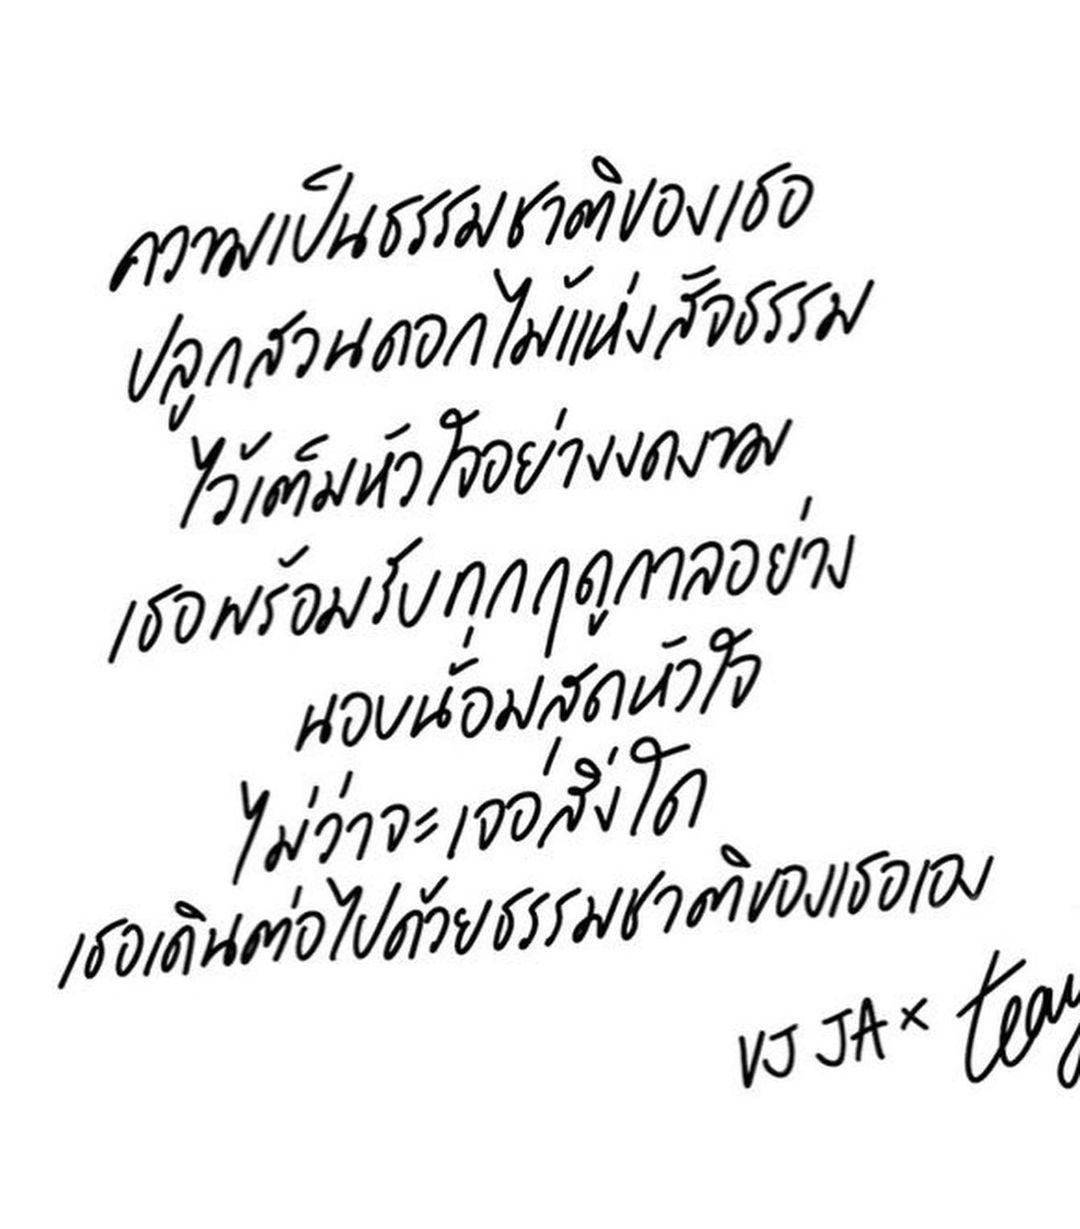 ความเป็นธรรมชาติของเธอ
ปลูกสวนดอกไม้แห่งสัจธรรม
ไว้เต็มหัวใจอย่างงดงาม
เธอพร้อมรับทุกฤดูกาลอย่าง
นอบน้อมสุดหัวใจ
ไม่ว่าจะเจอสิ่งใด
เธอเดินต่อไปด้วยธรรมชาติของเธอเอง
VJ JA x